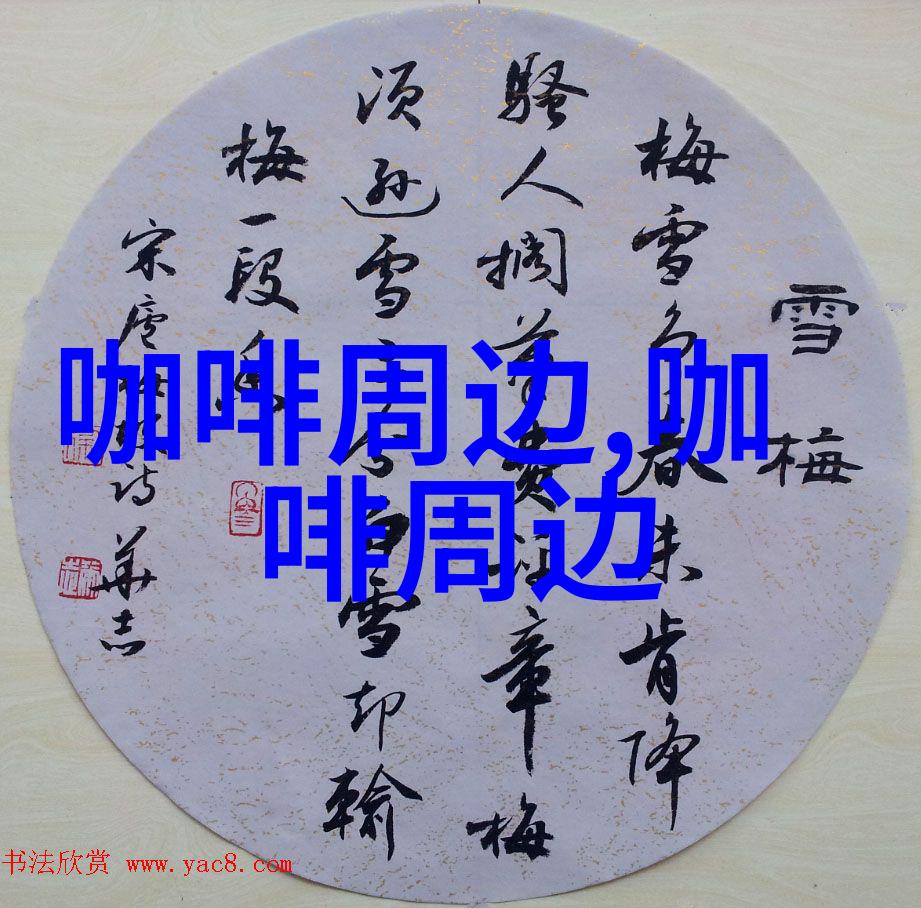 雪梅
梅雪争春未肯降
騷人搁笔费评章梅
须逊雪三分白雪却输
梅一段香
宋卢梅坡诗 華志
咖啡周边,咖
啡周边
书法欣赏 www.yac8.com